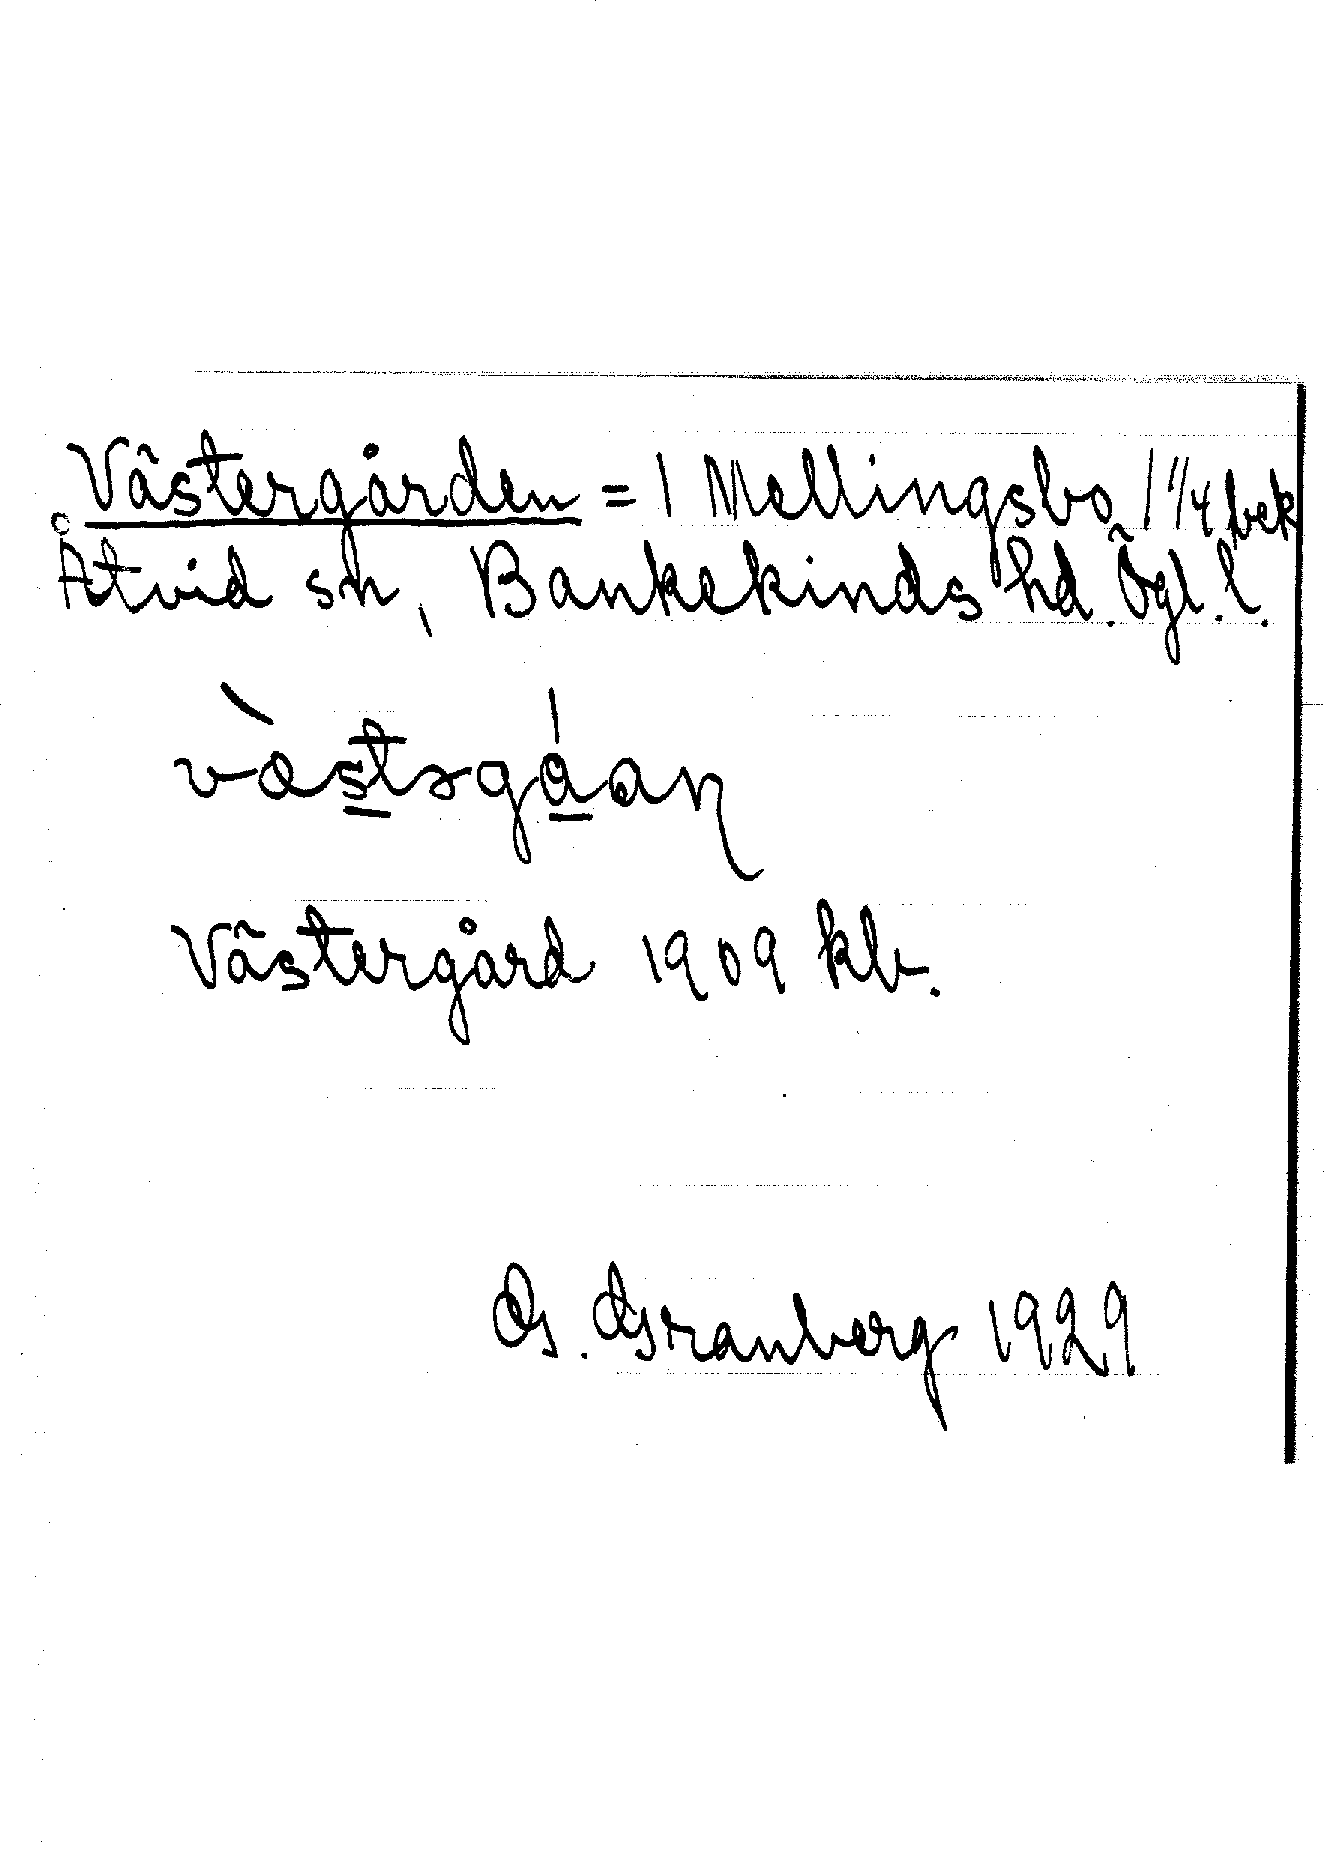 Västergården = 1 Mellingsbo 1 1/4 bek
Åtvid sn, Bankekinds hd. Ögl. l.
væ̀stəgáan
Västergård 1909 kb.
G. Granberg 1929